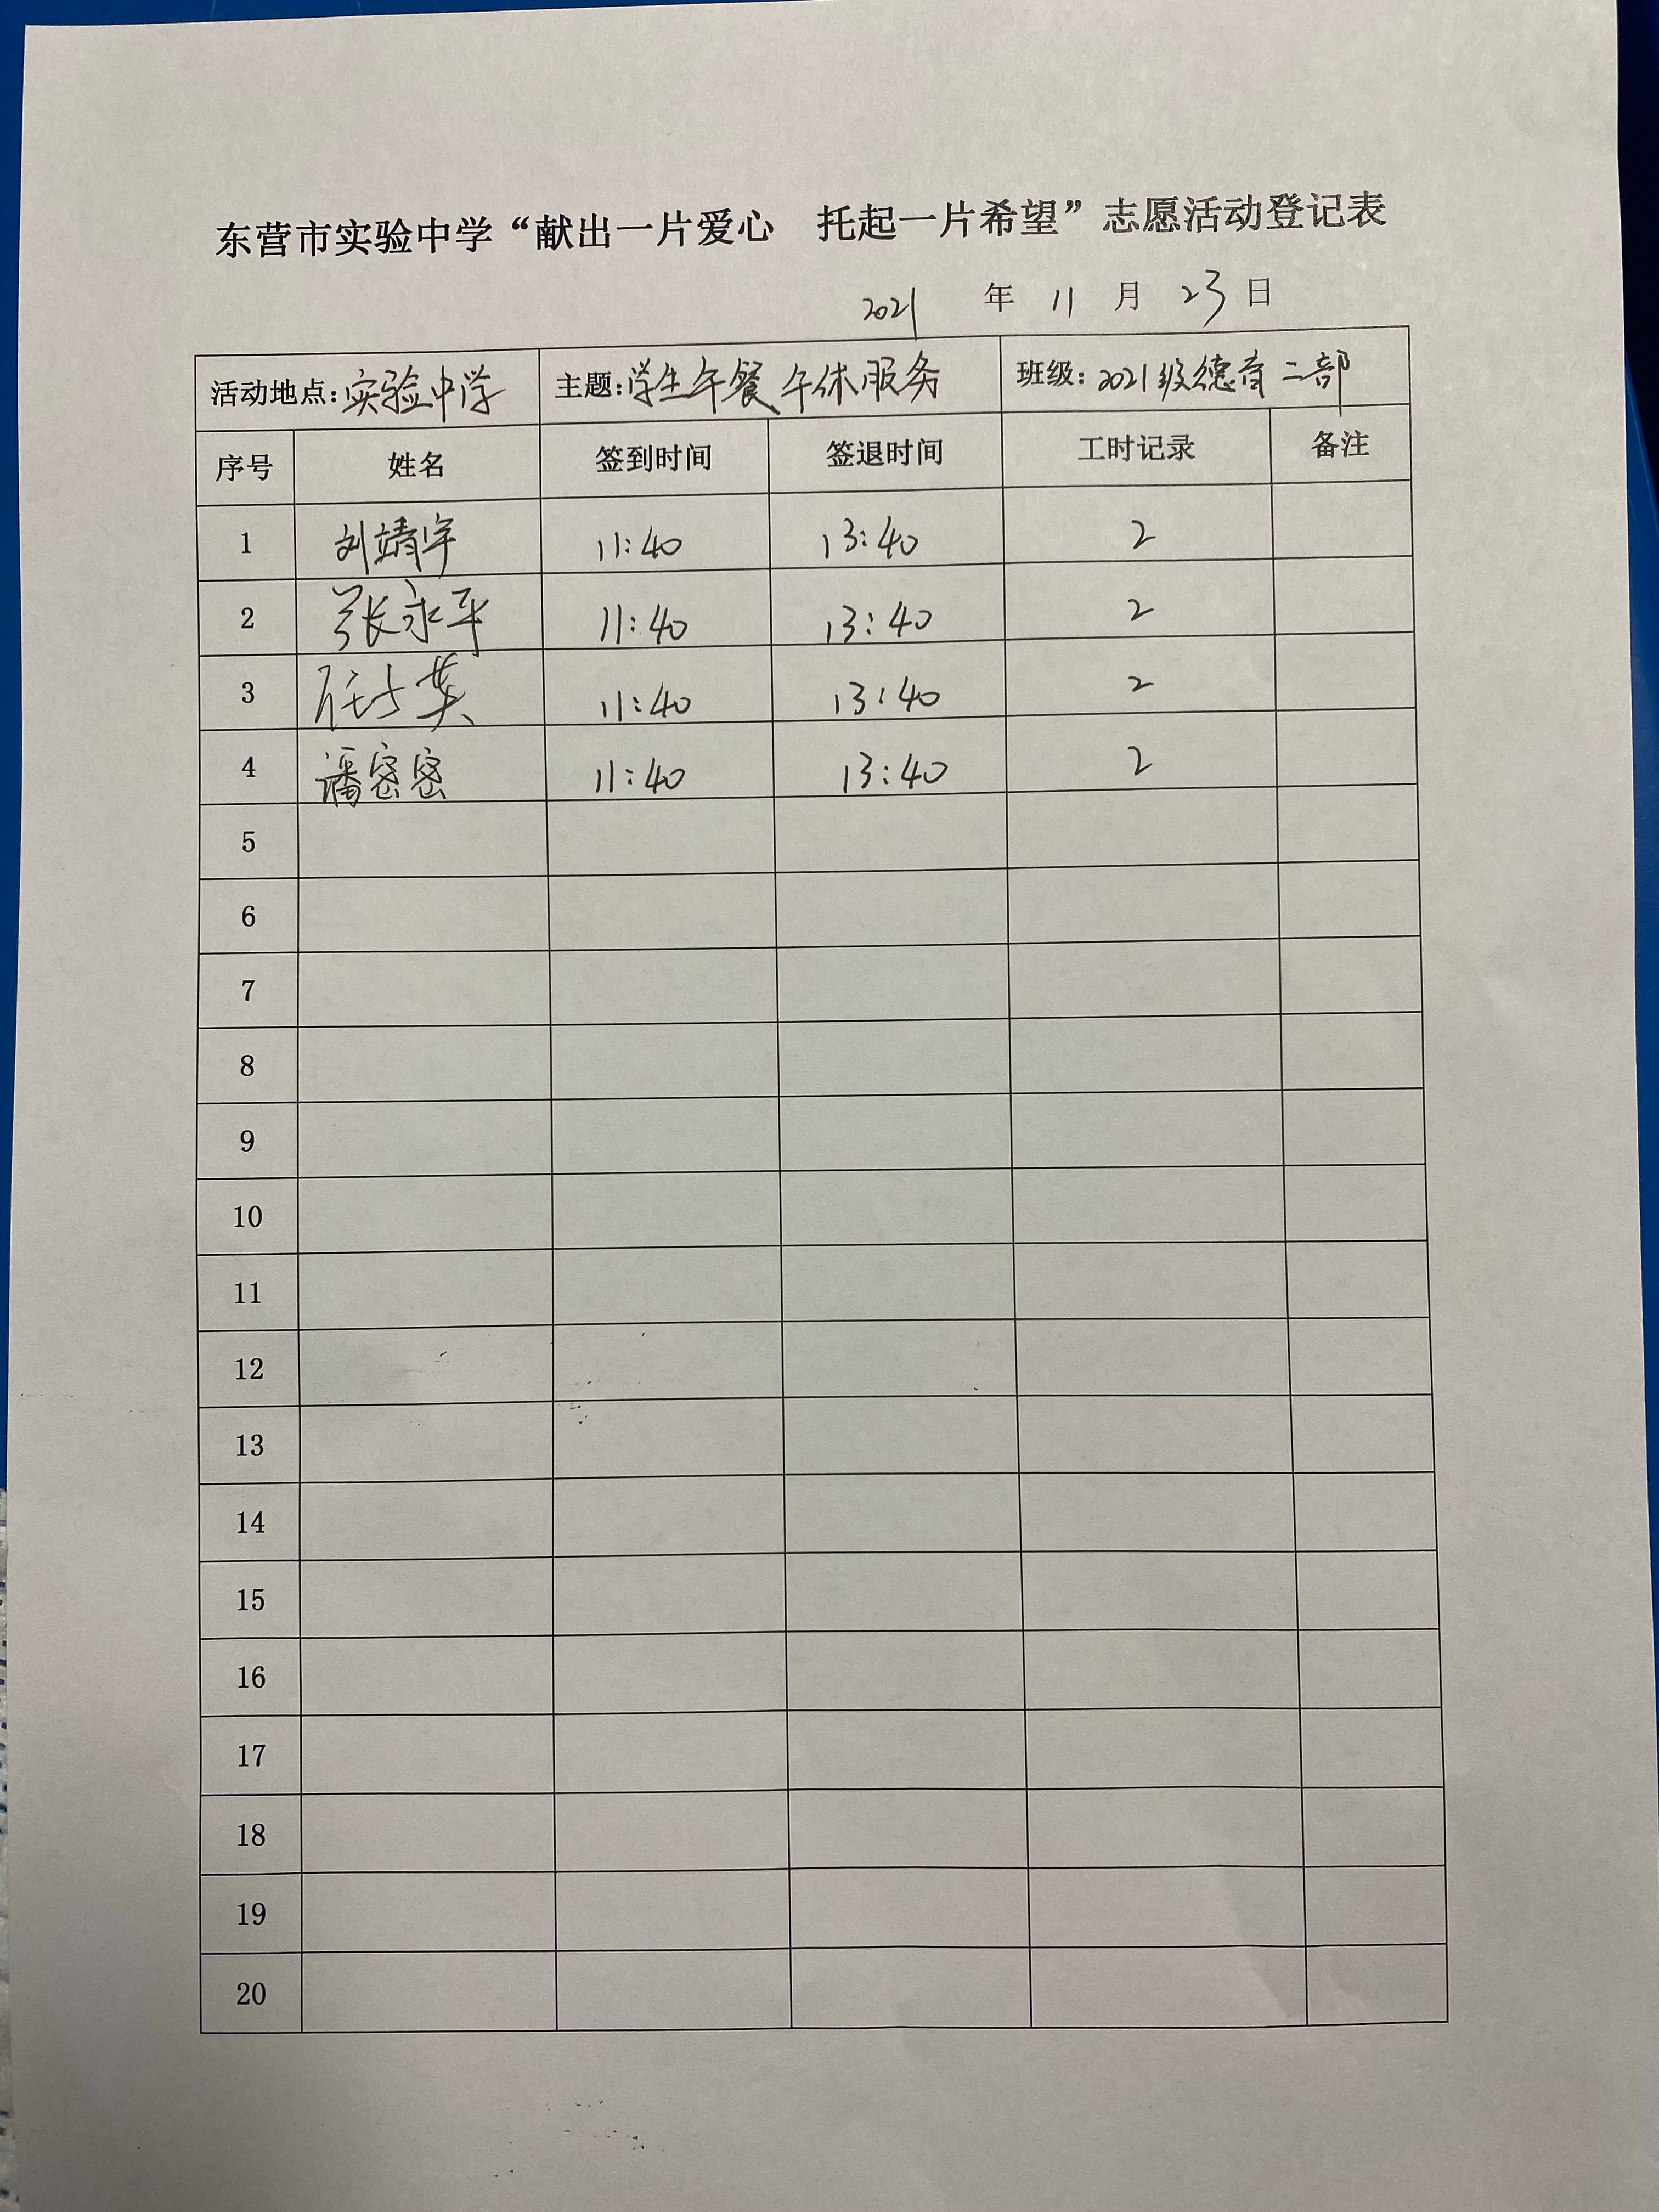 东营市实验中学“献出一片爱心 托起一片希望”志愿活动登记表
2021 年 11 月 23 日
活动地点：实验中学 主题：学生午餐午休服务 班级：2021级德育二部
序号 姓名 签到时间 签退时间 工时记录 备注
1 刘靖宇 11:40 13:40 2
2 张永平 11:40 13:40 2
3 11:40 13:40 2
4 潘密密 11:40 13:40 2
5
6
7
8
9
10
11
12
13
14
15
16
17
18
19
20